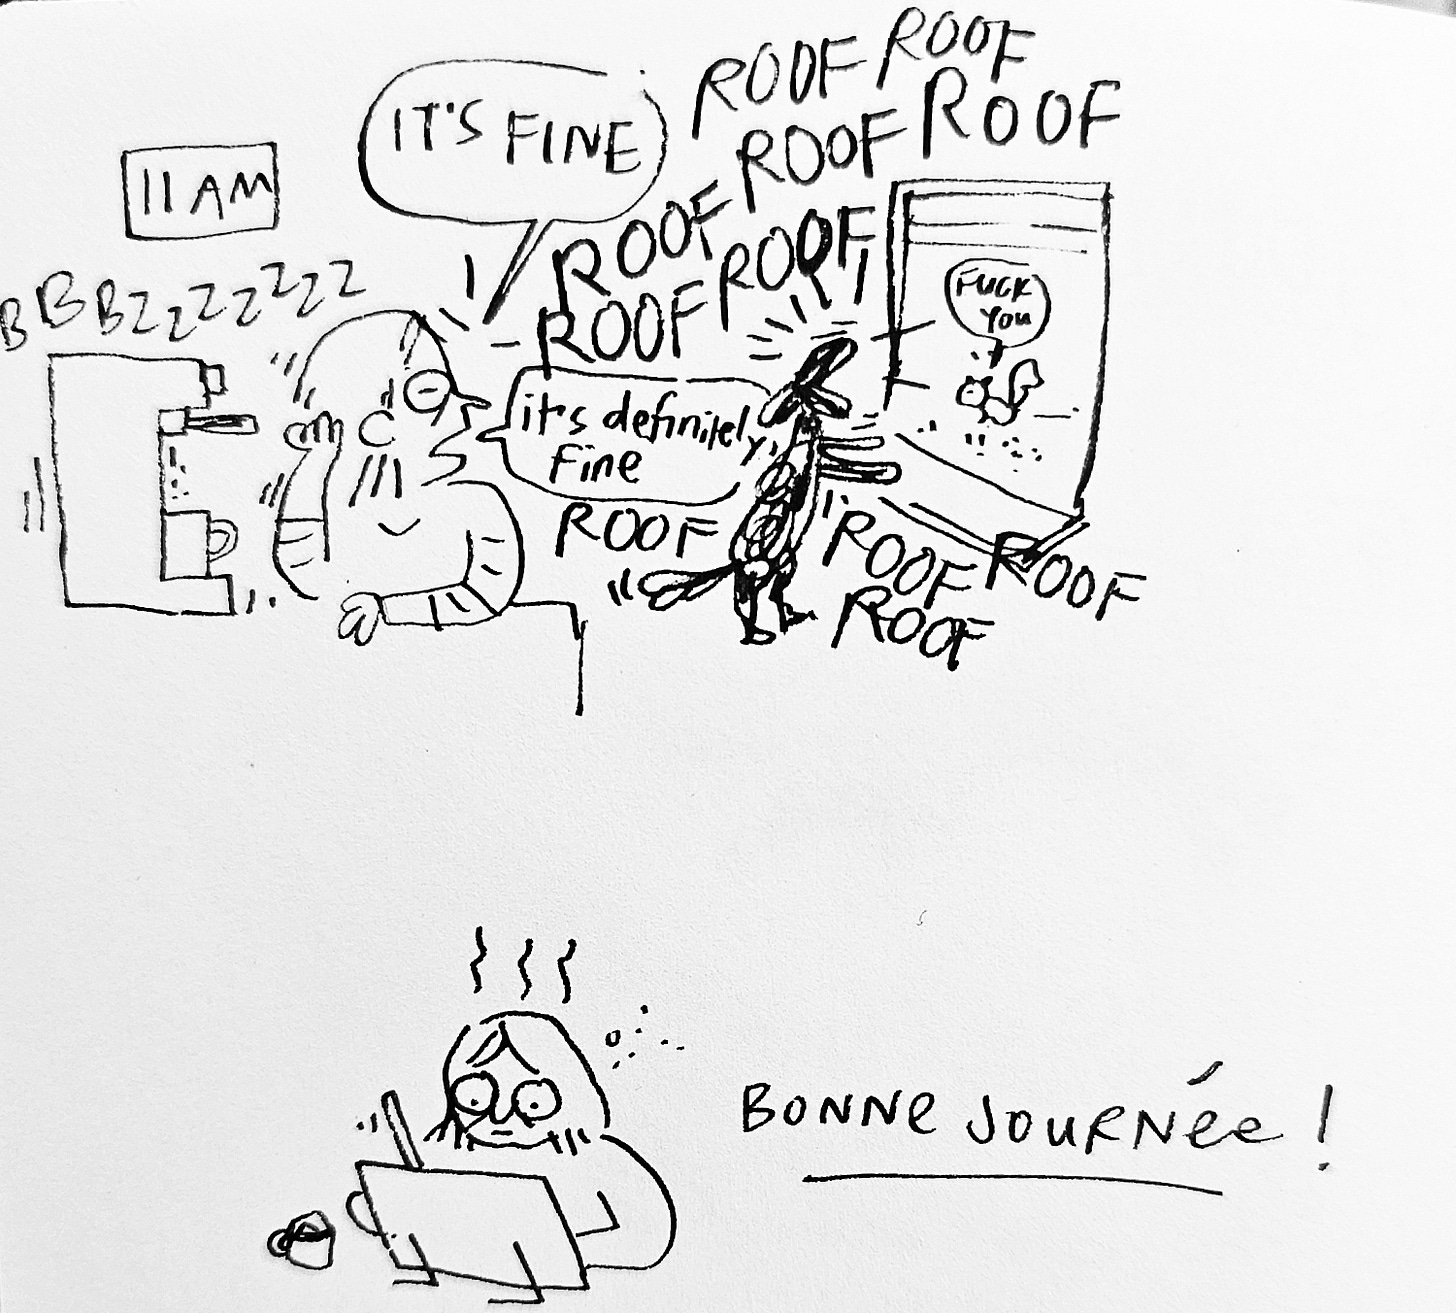 ROOF ROOF
ROOF ROOF
IT'S FINE
11 AM
ROOF ROOF
ROOF
BBBZZZZZZZZ
FUCK
YOU
it's definitely
fine
ROOF
ROOF ROOF
ROOF
BONNE JOURNÉE!